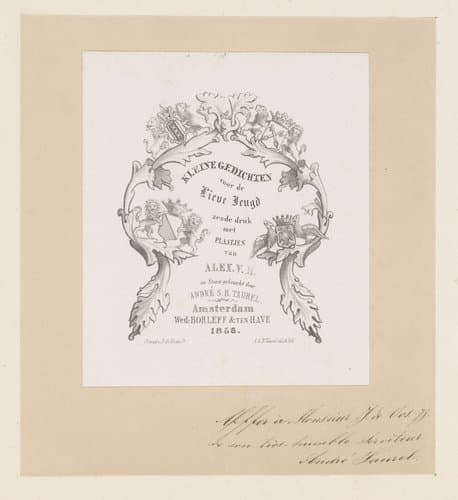 KLEINE GEDICHTEN
voor de
Lieve Jeugd
zesde druk
met
PLAATJES
van
ALEX. V. R.
op Steen gebracht door
ANDRÉ S.B. TAUREL.
Amsterdam
Wed. BORLEFF & TEN HAVE
1858.
à Monsieur J. de Vos
son très humble serviteur
André Taurel.